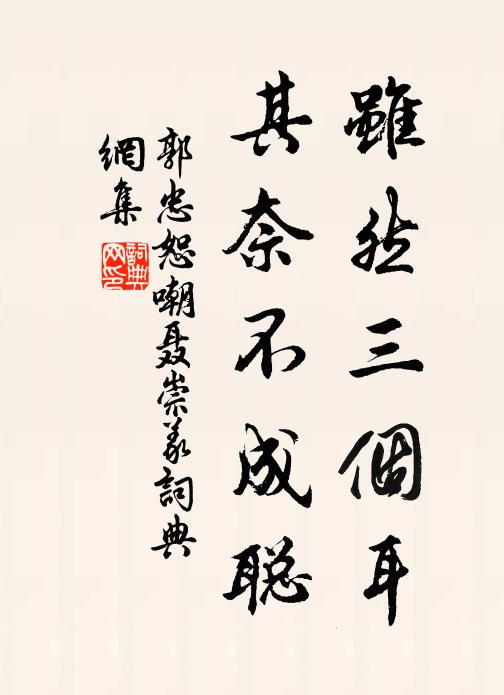 雖然三個耳
其奈不成聪
郭忠恕嘲聂崇义詞典
網集
詞典
网印